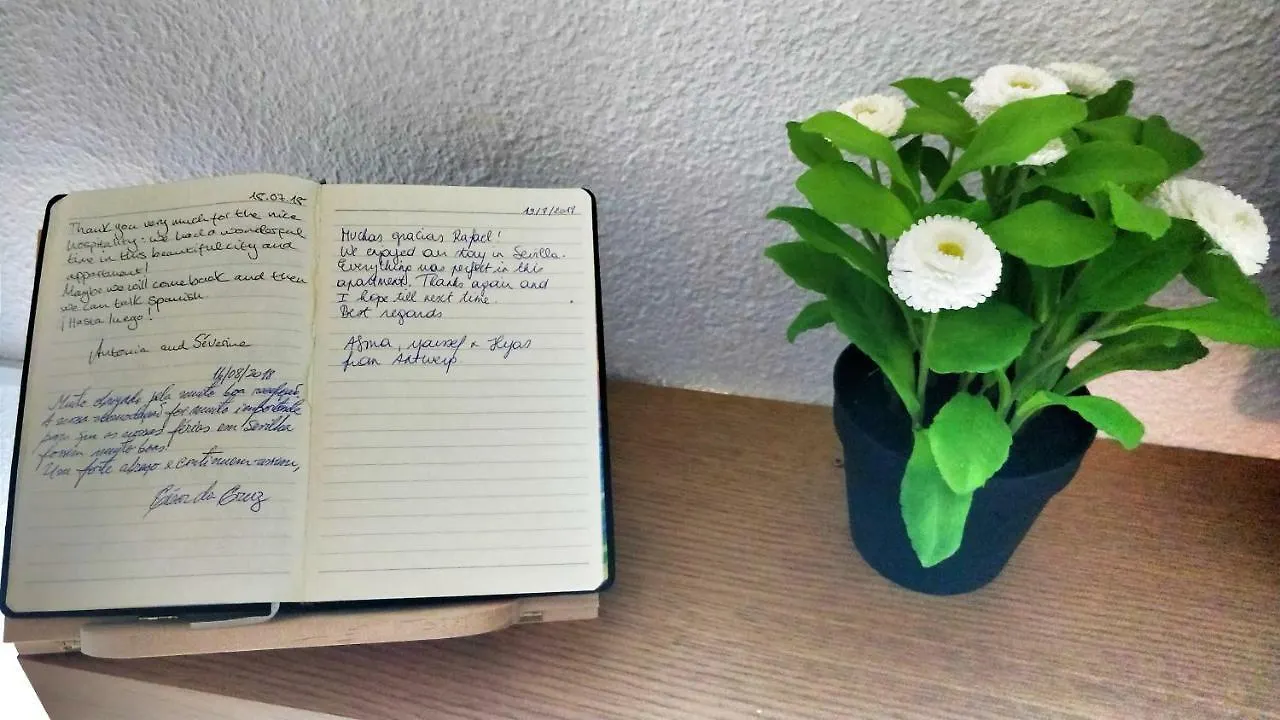 15.07.18
Thank you very much for the nice
hospitality! We had a wonderful
time in this beautiful city and
appartment!
Maybe we will come back and then
we can talk spanish
¡Hasta luego!
Antonia and Séverine
14/08/2018
Muito obrigado pela muito boa
A nossa for muito importante
para que as nossas férias em Sevilla
fossem muito boas!
Um forte abraço e continuem assim,
César da Cruz
19/8/2018
Muchas gracias Rafael!
We enjoyed our stay in Sevilla.
Everything was perfect in this
apartment. Thanks again and
I hope till next time.
Best regards
Asma, Yousef & Ilyas
from Antwerp